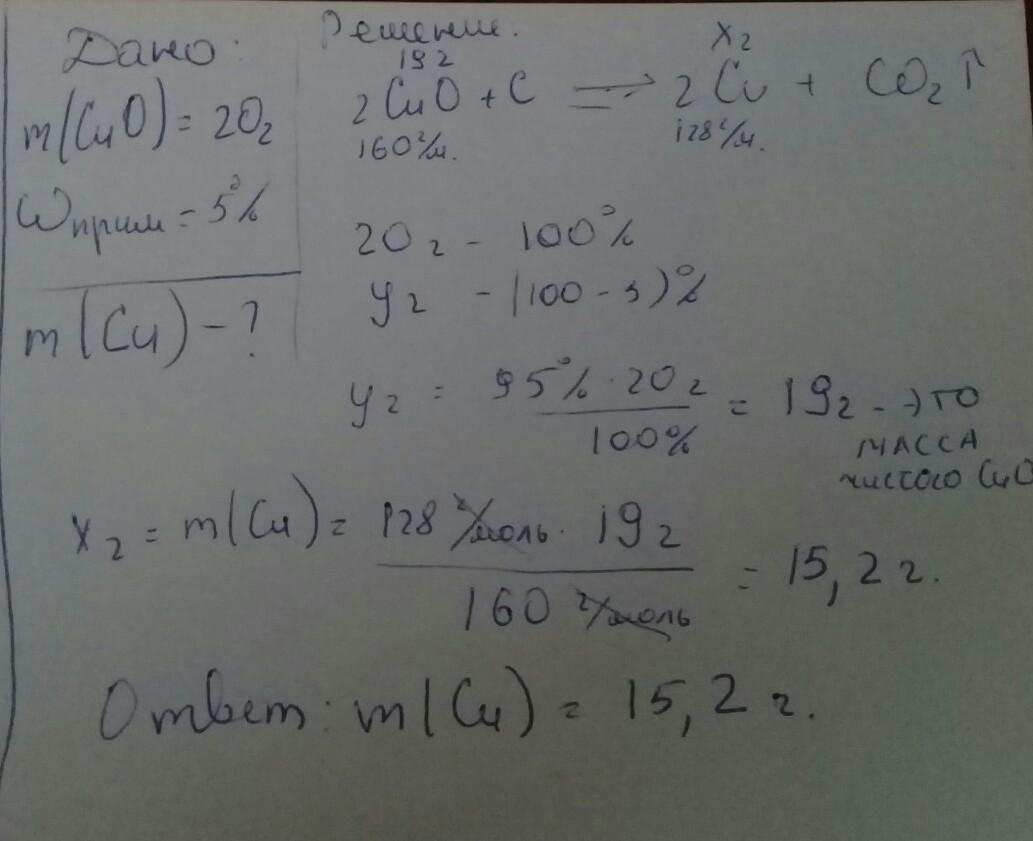 Дано:
m(CuO) = 20г
ωприм = 5%
m(Cu) - ?
Решение.
19г xг
2CuO + C ⇌ 2Cu + CO₂↑
160г/м. 128г/м.
20г - 100%
yг - (100 - 5)%
yг = 95% · 20г / 100% = 19г - это
масса
чистого CuO
xг = m(Cu) = 128 г/моль · 19г / 160 г/моль = 15,2 г.
Ответ: m(Cu) = 15,2 г.